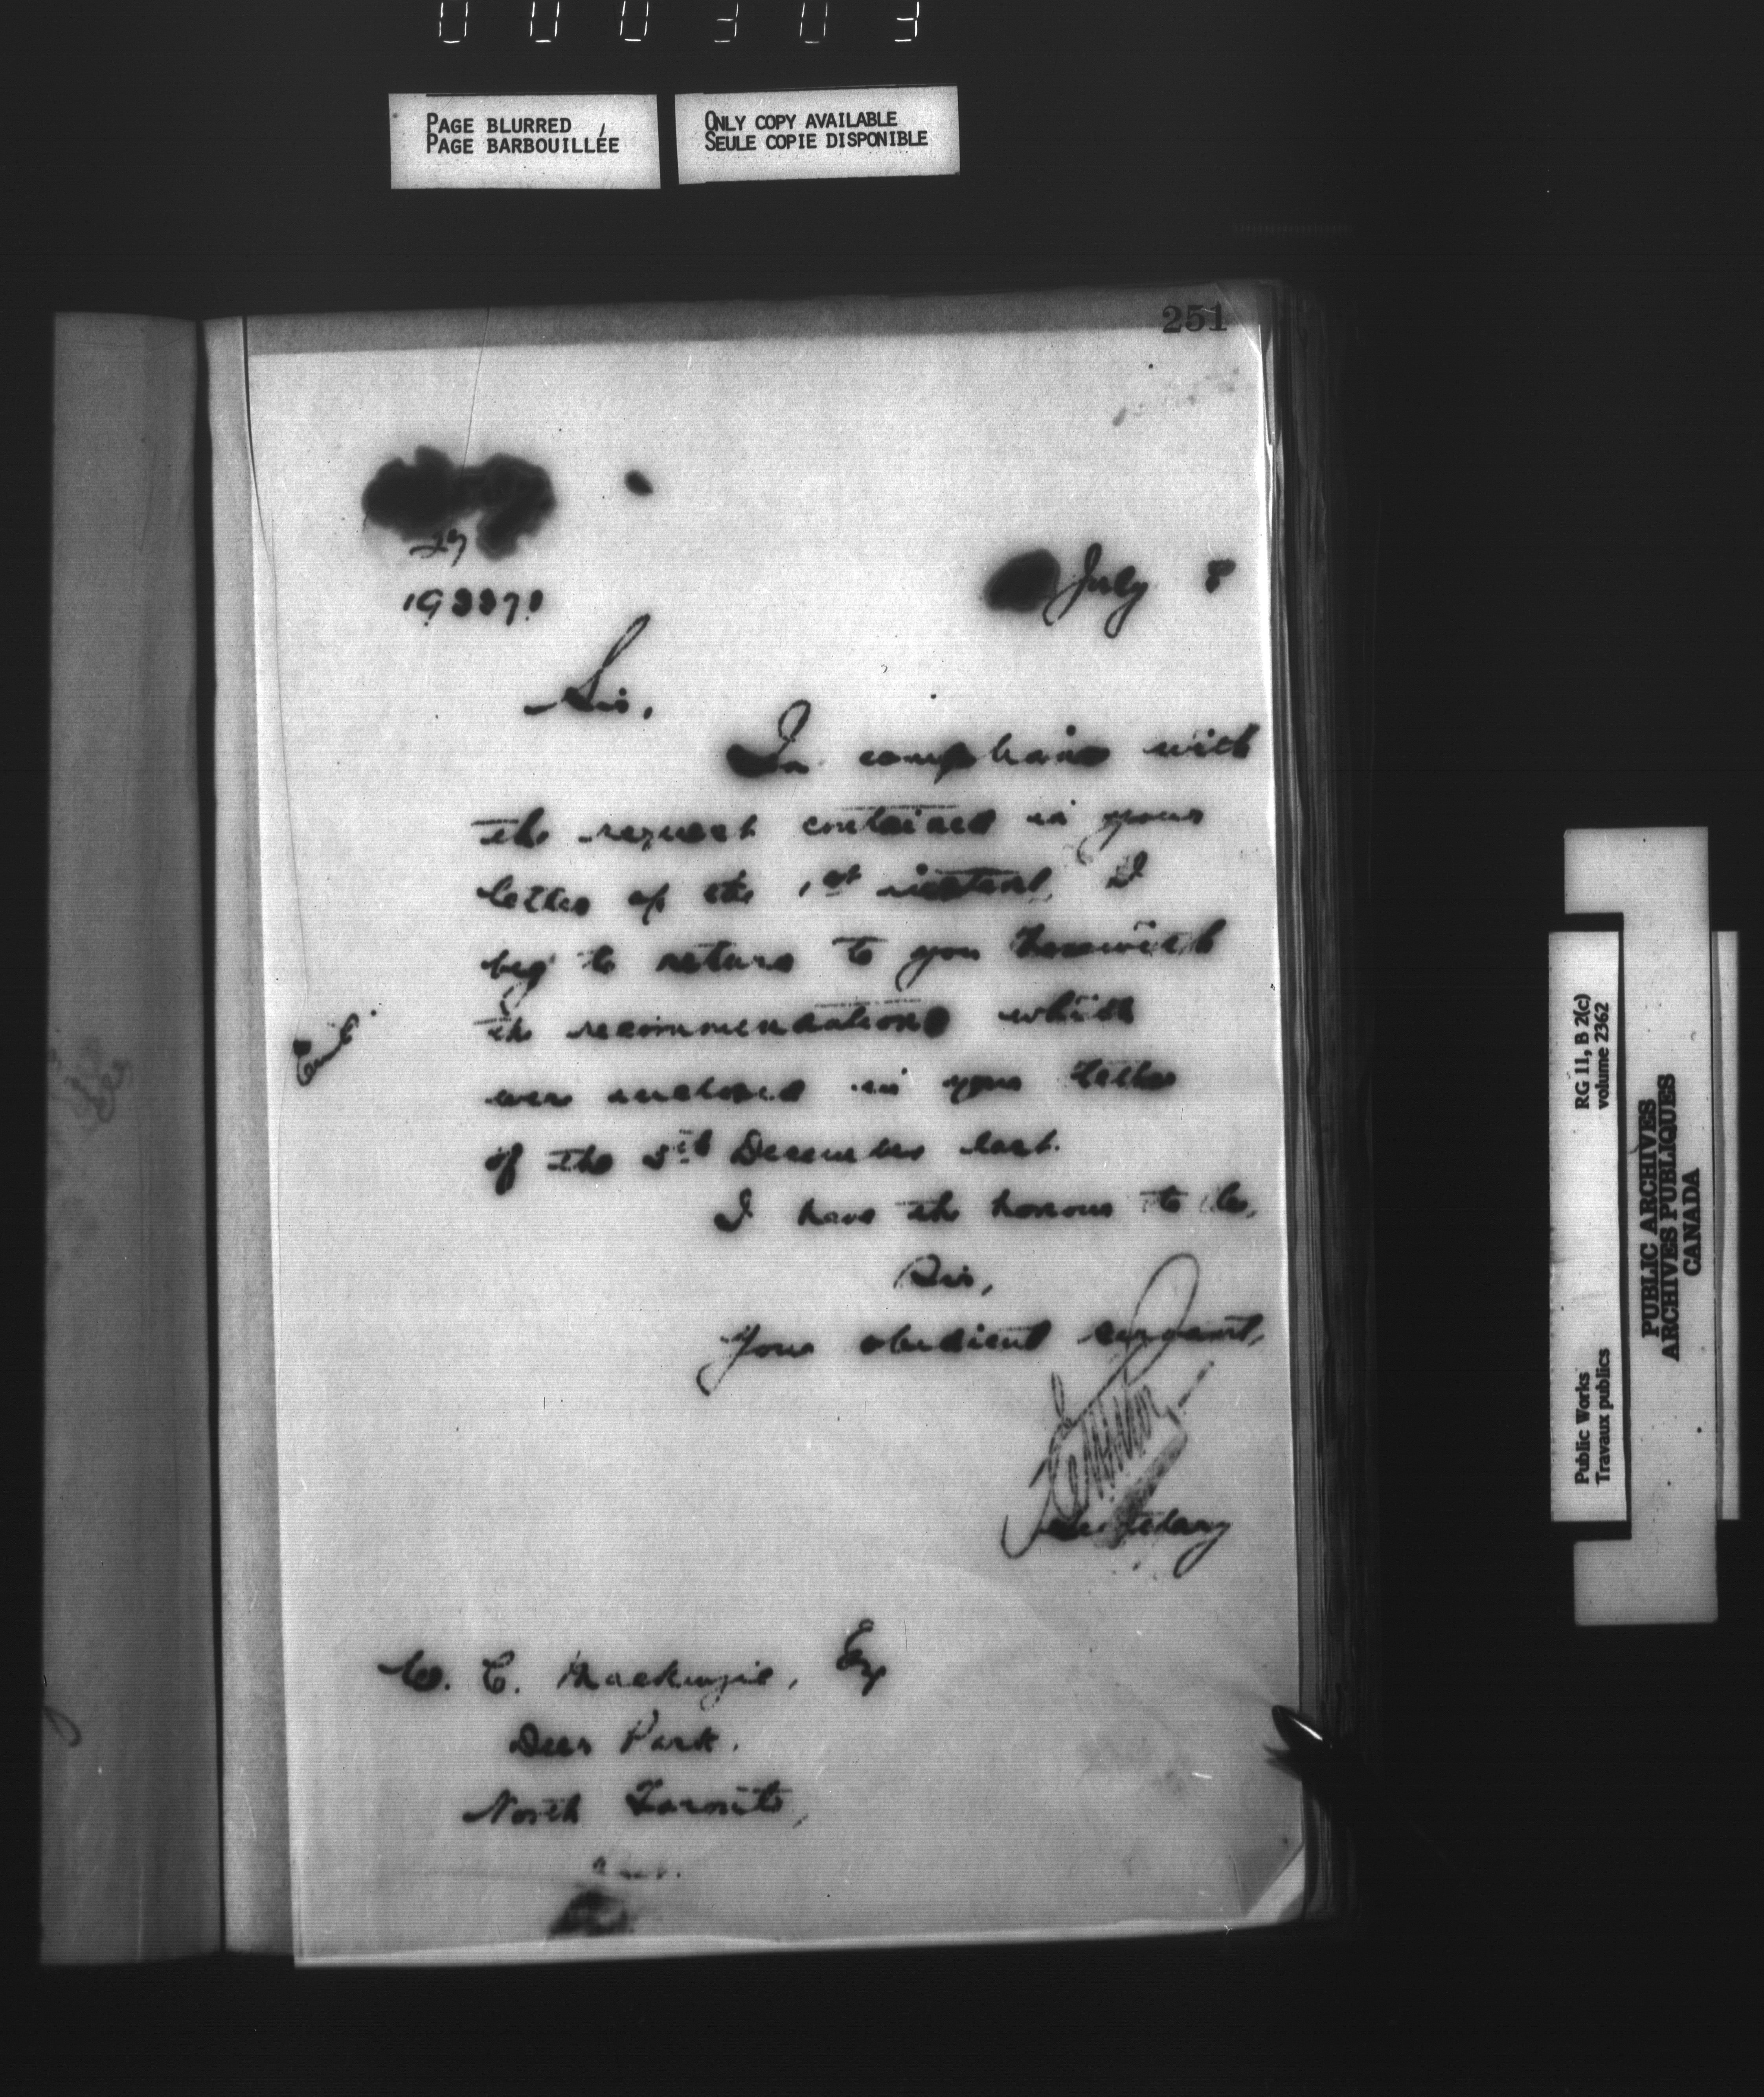 000303
PAGE BLURRED
PAGE BARBOUILLÉE
ONLY COPY AVAILABLE
SEULE COPIE DISPONIBLE
251
27
July 8
Sir,
In compliance with
the request contained in your
letter of the 1st instant, I
beg to return to you herewith
the recommendations which
were enclosed in your letter
of the 5th December last.
I have the honour to be,
Sir,
Your obedient servant,
Secretary
W. C. Mackenzie, Esq
Deer Park.
North Toronto,
RG 11, B 2(c)
volume 2362
Public Works
Travaux publics
PUBLIC ARCHIVES
ARCHIVES PUBLIQUES
CANADA